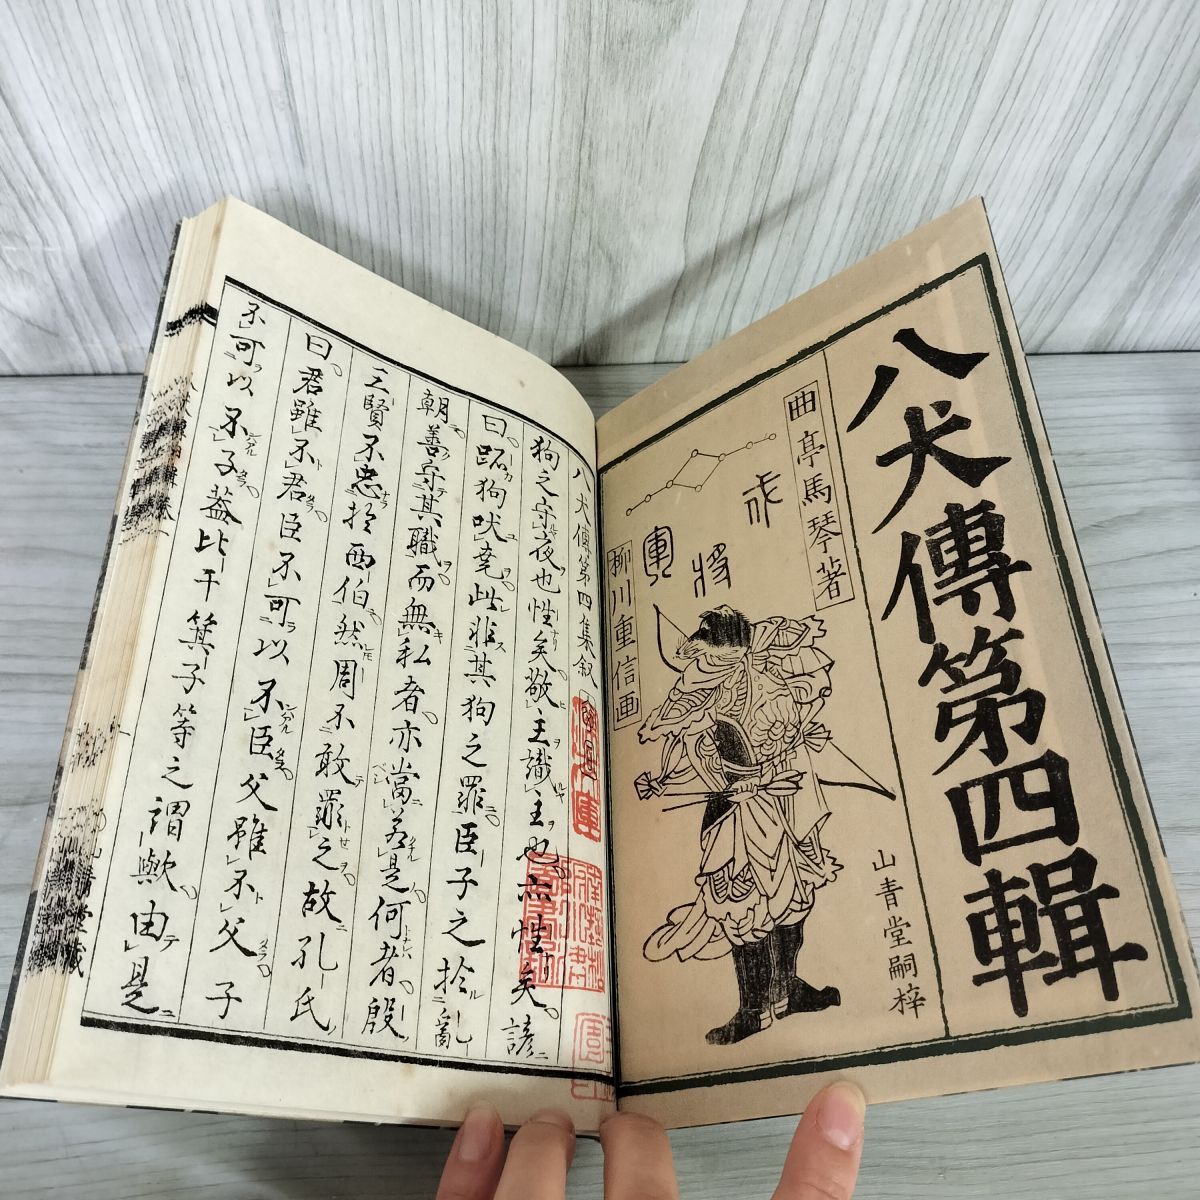 八犬傳第四輯
曲亭馬琴著
戌
将
軍
柳川重信画
山青堂嗣梓
八犬傳第四集叙
狗之守夜也性矣敬主識主也亦性矣諺
曰跖狗吠堯此非其狗之罪臣子之於乱
朝善守其職而無私者亦當若是何者殷
三賢不忠於西伯然周不敢罪之故孔氏
曰君雖不君臣不可以不臣父雖不父子
不可以不子蓋比干箕子等之謂歟由是